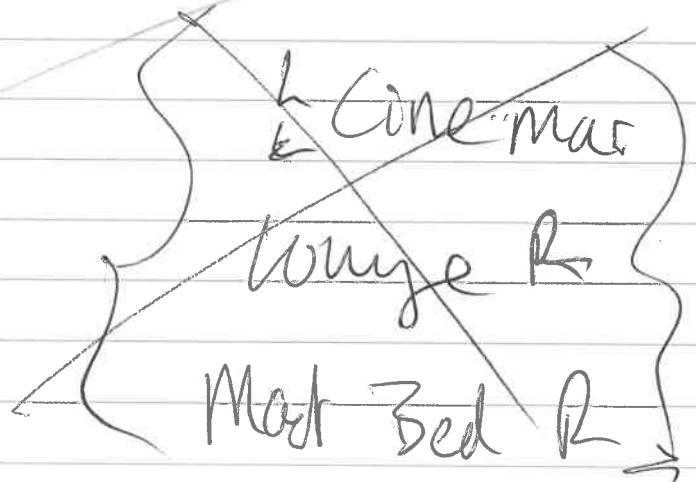 Cinemar
Lounge R
Mast Bed R